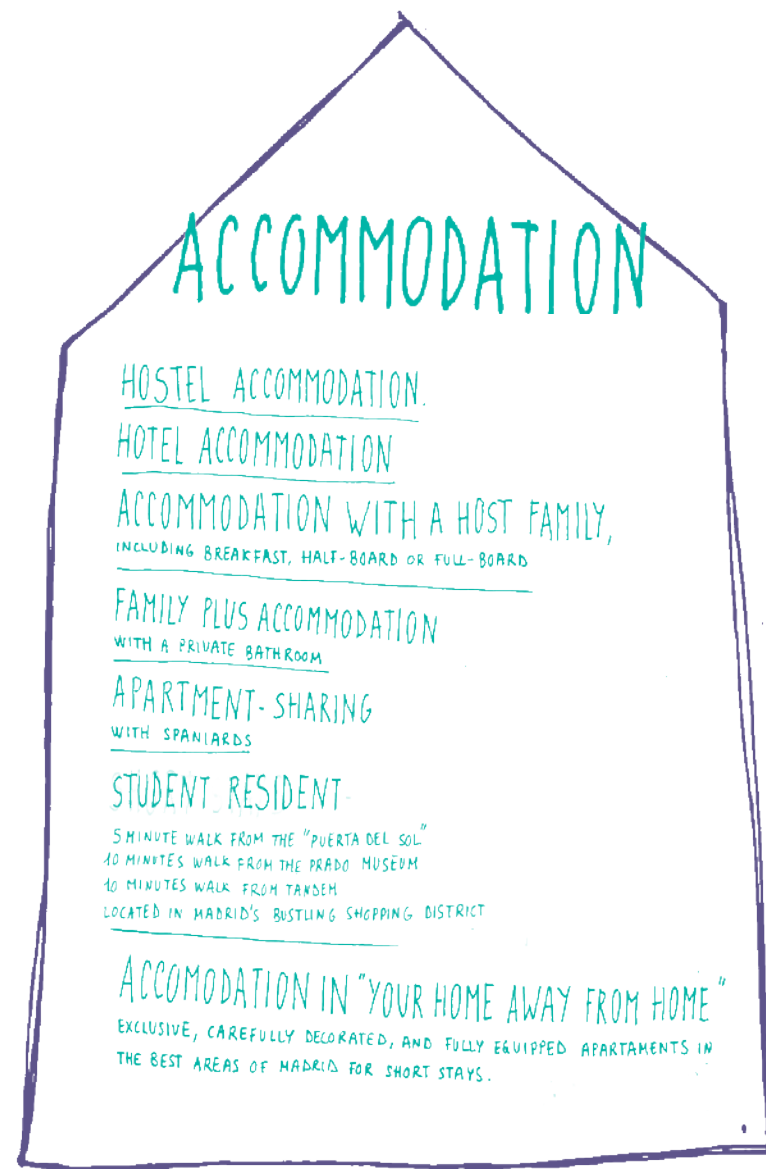 ACCOMMODATION
HOSTEL ACCOMMODATION.
HOTEL ACCOMMODATION
ACCOMMODATION WITH A HOST FAMILY,
INCLUDING BREAKFAST, HALF-BOARD OR FULL-BOARD
FAMILY PLUS ACCOMMODATION
WITH A PRIVATE BATHROOM
APARTMENT-SHARING
WITH SPANIARDS
STUDENT RESIDENT
5 MINUTE WALK FROM THE "PUERTA DEL SOL"
10 MINUTES WALK FROM THE PRADO MUSEUM
10 MINUTES WALK FROM TANDEM
LOCATED IN MADRID'S BUSTLING SHOPPING DISTRICT
ACCOMODATION IN "YOUR HOME AWAY FROM HOME"
EXCLUSIVE, CAREFULLY DECORATED, AND FULLY EQUIPPED APARTAMENTS IN
THE BEST AREAS OF MADRID FOR SHORT STAYS.